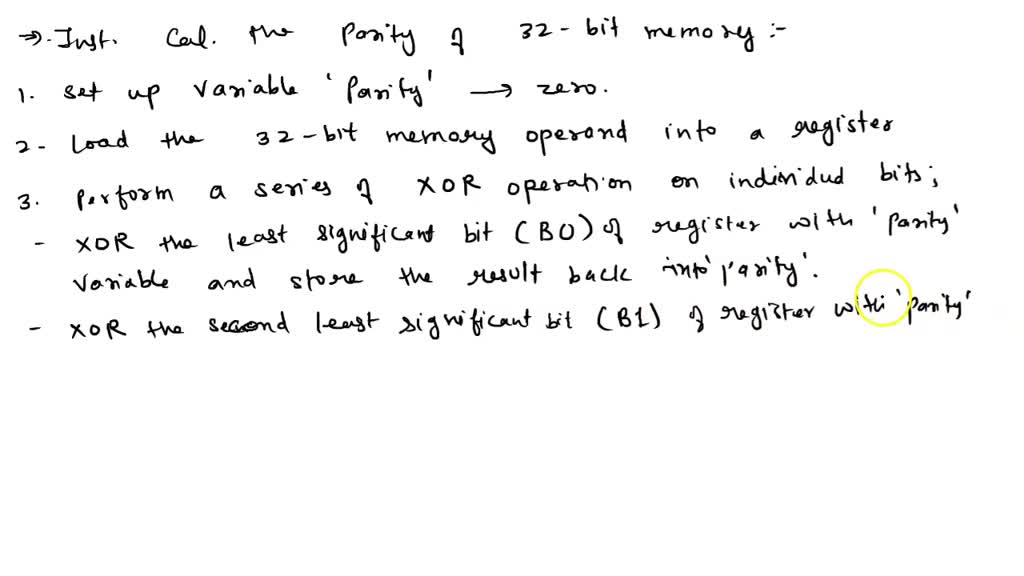 ⇒. Inst. Cal. the Parity of 32-bit memory :-
1. set up variable 'Parity' → zero.
2- Load the 32-bit memory operand into a register
3. Perform a series of XOR operation on individud bits;
- XOR the least significant bit (B0) of register with 'parity'
variable and store the result back into 'parity'.
- XOR the second least significant bit (B1) of register with 'parity'